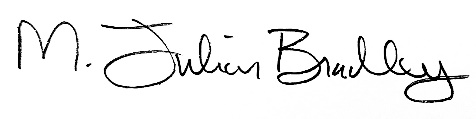 M. Julian Bradley